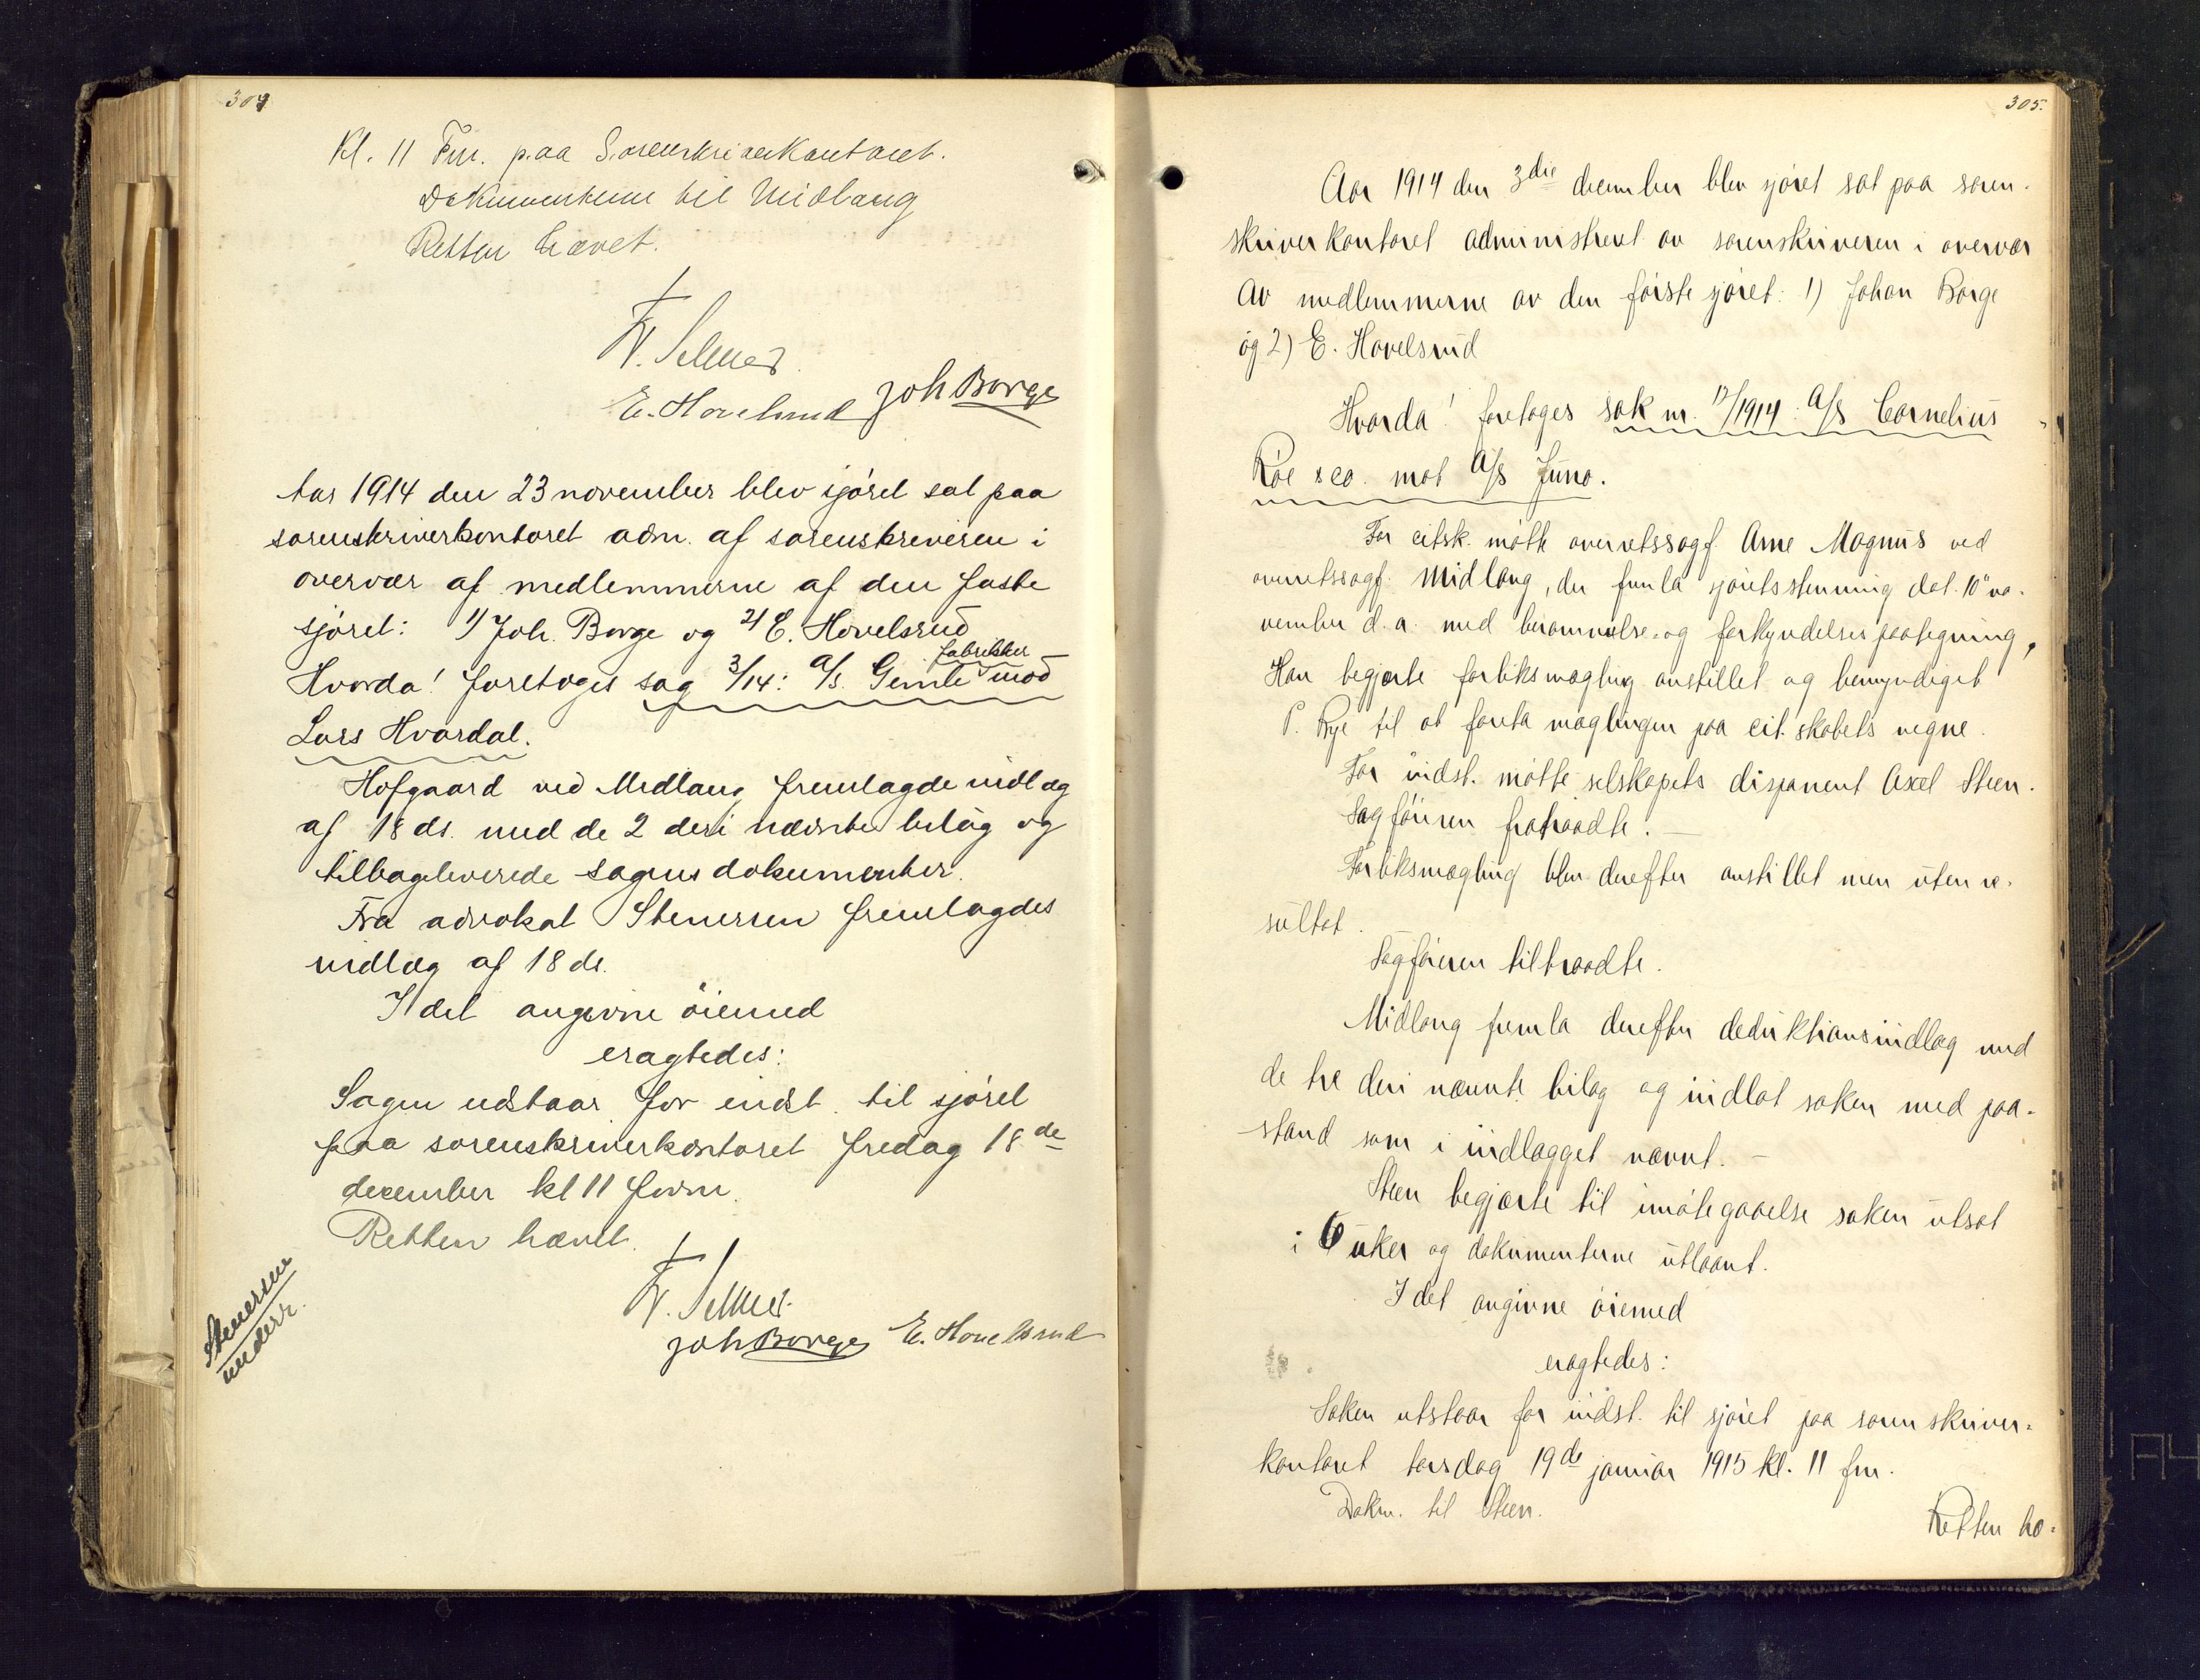 304
Kl. 11 Fm. paa Sorenskriverkontoret.
Dokumenterne til Midlang
Retten hævet.
Fr. Selmer
E. Hovelsrud Joh Borge
Aar 1914 den 23 november blev sjøret sat paa
sorenskriverkontoret adm. af sorenskriveren i
overvær af medlemmerne af den faste
sjøret: 1) Joh. Borge og 2) E. Hovelsrud
Hvorda! foretoges sag 3/14: A/S. Gimle fabrikker mod
Lars Hvardal.
Hofgaard ved Midlang fremlagde indlæg
af 18 ds. med de 2 deri nævnte bilag og
tilbageleverede sagens dokumenter.
Fra advokat Stenersen fremlagdes
indlæg af 18 ds.
I det angivne øiemed
eragtedes:
Sagen udstaar for indst. til sjøret
paa sorenskriverkontoret fredag 18de
december kl 11 form.
Retten hævet.
Fr. Selmer
Joh Borge E. Hovelsrud
Stenersen
underr.
305.
Aar 1914 den 3die december blev sjøret sat paa soren-
skriverkontoret administreret av sorenskriveren i overvær
av medlemmerne av den første sjøret: 1) Johan Borge
og 2) E. Hovelsrud
Hvorda! foretoges sak nr. 12/1914: A/S Cornelius
Røe & co. mot A/S Juno.
For citsk. møtte overretssagf. Arne Magnus ved
overretssagf. Midlang, der fremla sjøretsstemning dat. 10de no-
vember d.a. med berammelses- og forkyndelsespaategning,
Han begjærte forliksmægling anstillet og bemyndiget
P. Rye til at foreta mæglingen paa cit.skabets vegne.
For indst. møtte selskapets disponent Axel Steen.
Sagføreren fratraadte. —
Forliksmægling blev derefter anstillet men uten re-
sultat.
Sagføreren tiltraadte.
Midlang fremla derefter deduktionsindlæg med
de tre deri nævnte bilag og indlot saken med paa-
stand som i indlægget nævnt. —
Steen begjærte til imøtegaaelse saken utsat
i 6 uker og dokumenterne utlaant.
I det angivne øiemed
eragtedes:
Saken utstaar for indst. til sjøret paa sorenskriver-
kontoret torsdag 19de januar 1915 kl. 11 fm.
Dokm. til Steen.
Retten hæ-